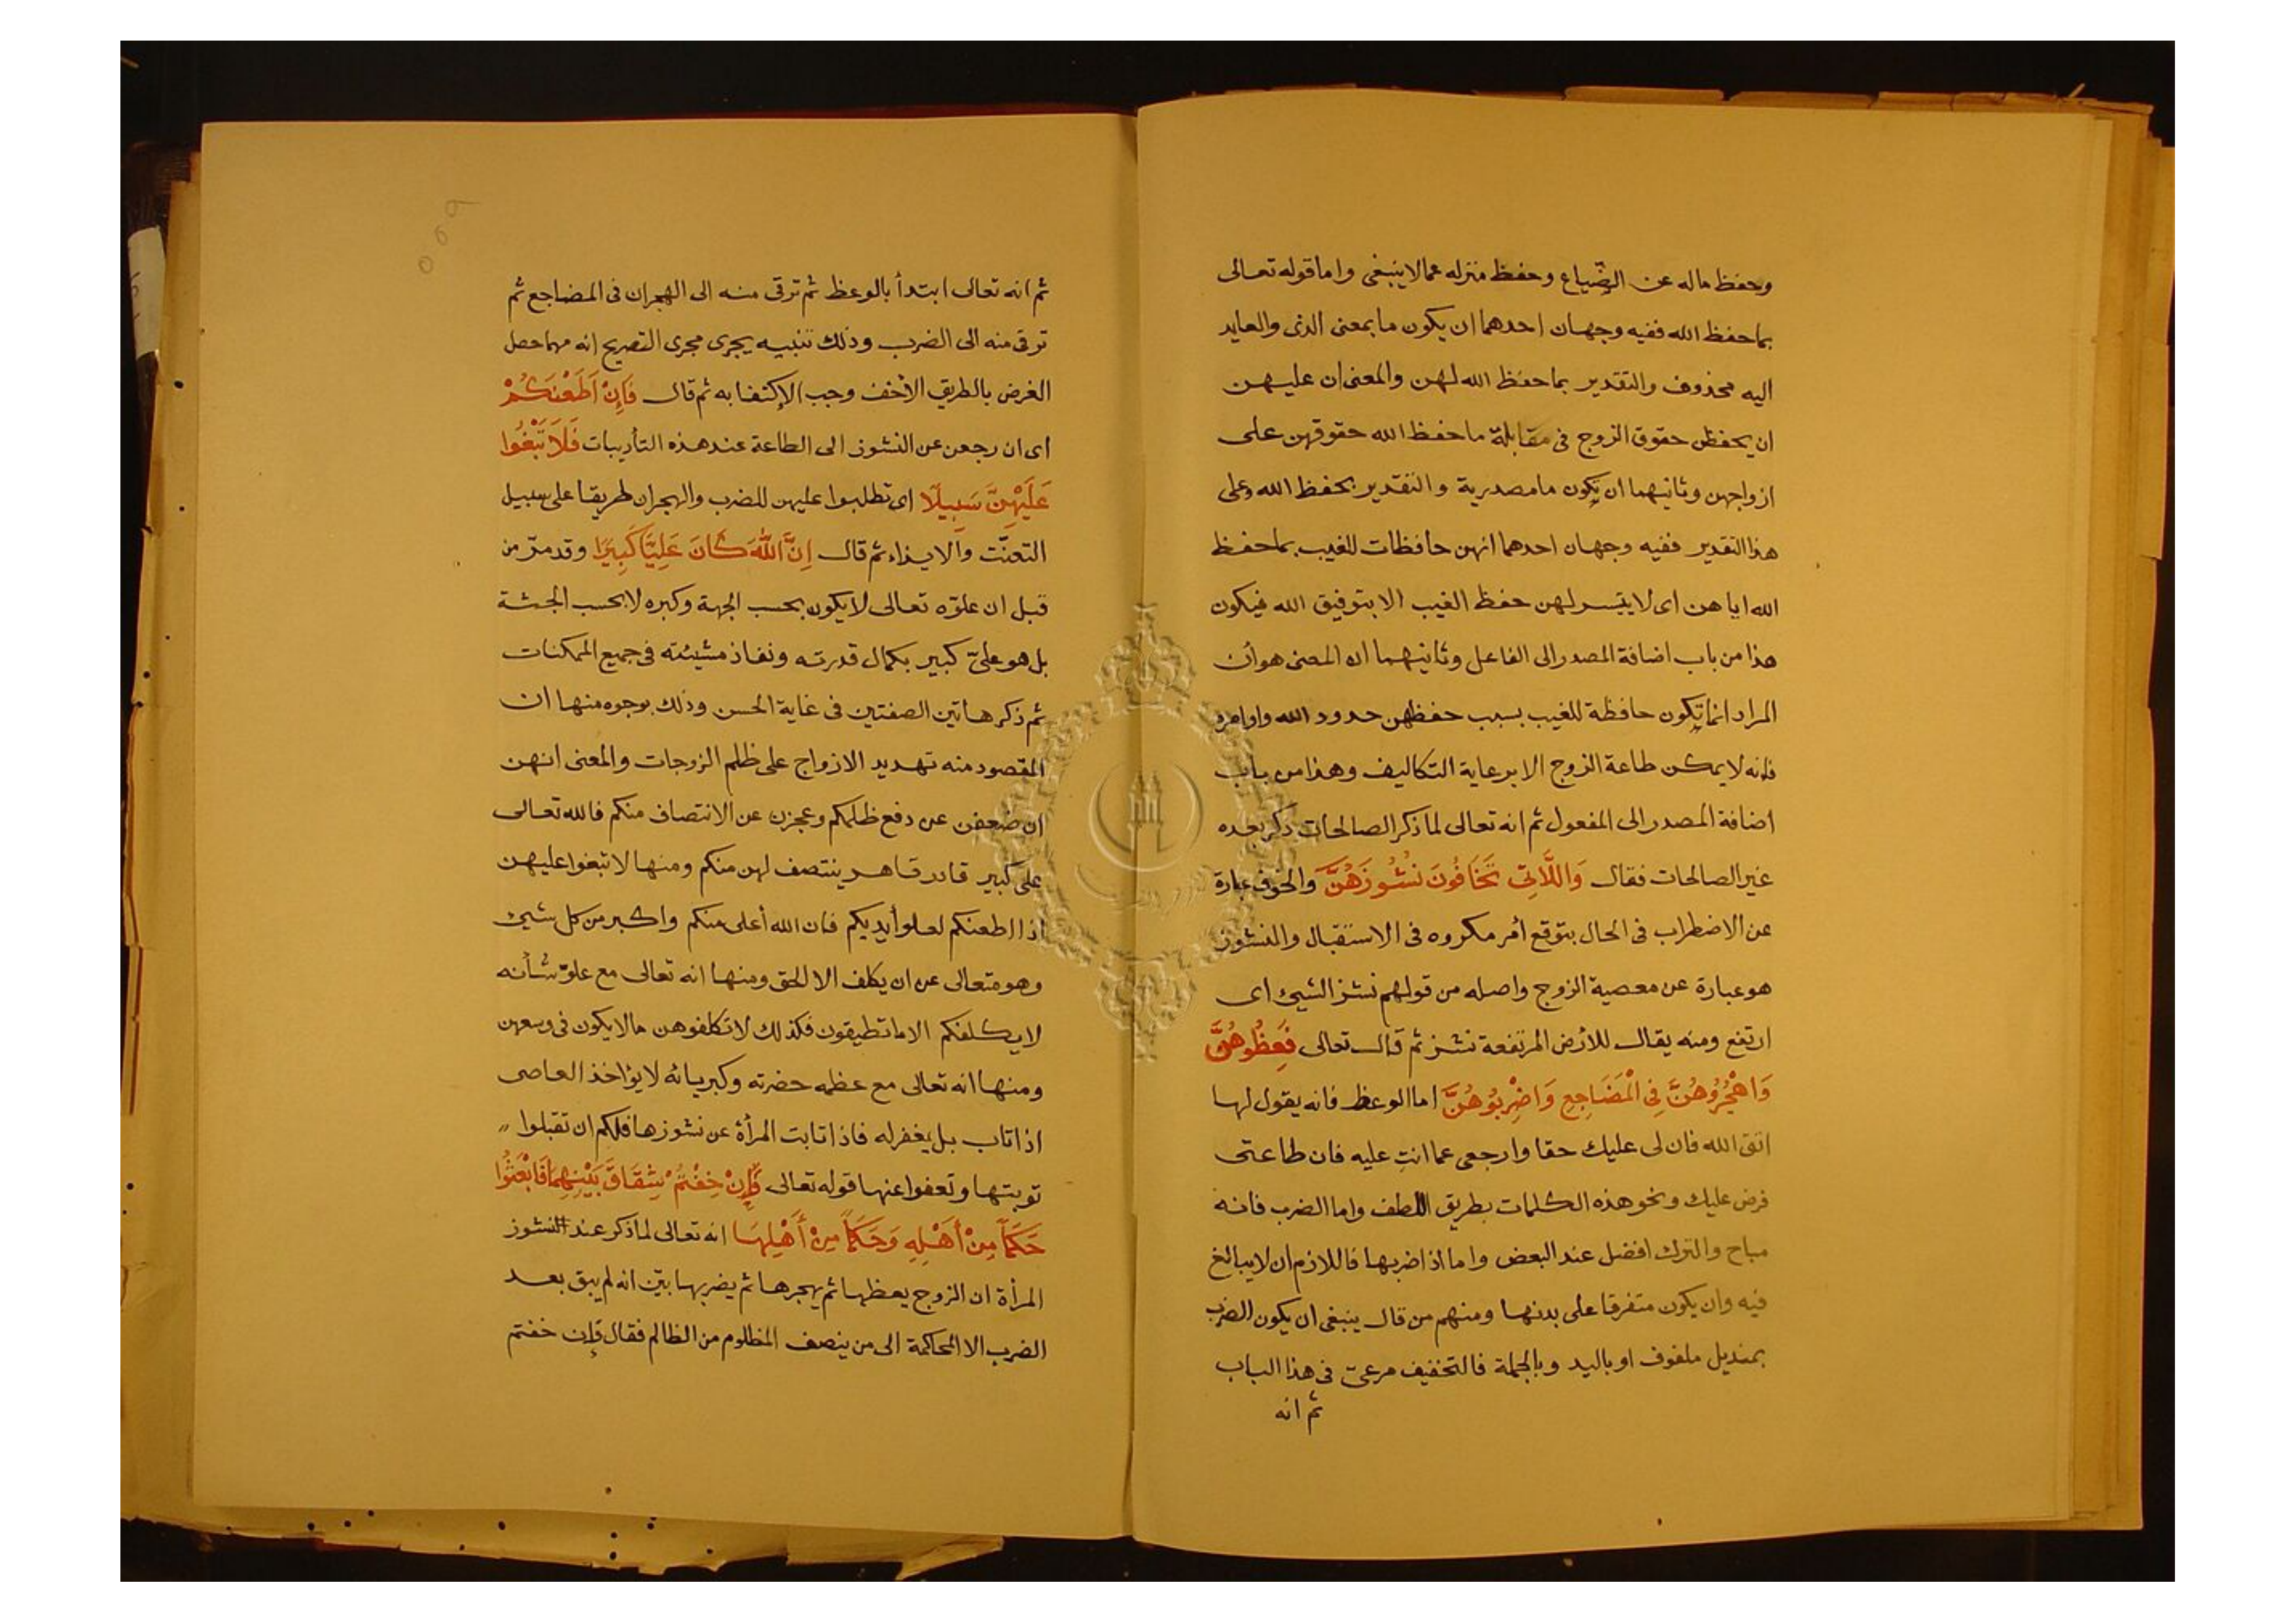 وحفظ ماله عن الضّياع وحفظ منزله عمالاينبغى واماقوله تعالى
بماحفظ الله ففيه وجهان احدهما ان يكون مابمعنى الذى والعايد
اليه محذوف والتقدير بماحفظ الله لهن والمعنى ان عليهن
ان يحفظن حقوق الزوج فى مقابلة ماحفظ الله حقوقهن على
ازواجهن وثانيهما ان يكون مامصدرية والتقدير بحفظ الله وعلى
هذا التقدير ففيه وجهان احدهما انهن حافظات للغيب بماحفظ
الله اياهن اى لايتيسر لهن حفظ الغيب الابتوفيق الله فيكون
هذا من باب اضافة المصدر الى الفاعل وثانيهما ان المعنى هوأن
المراد انما تكون حافظة للغيب بسبب حفظهن حدود الله واوامره
فانه لايمكن طاعة الزوج الابرعاية التكاليف وهذا من باب
اضافة المصدر الى المفعول ثم انه تعالى لماذكر الصالحات ذكر بعده
غير الصالحات فقال وَاللَّاتِى تَخَافُونَ نُشُوزَهُنَّ والخوف عبارة
عن الاضطراب فى الحال بتوقع أمر مكروه فى الاستقبال والنشوز
هو عبارة عن معصية الزوج واصله من قولهم نشز الشيئ اى
ارتفع ومنه يقال للأرض المرتفعة نشز ثم قال تعالى فَعِظُوهُنَّ
وَاهْجُرُوهُنَّ فِى الْمَضَاجِعِ وَاضْرِبُوهُنَّ اما الوعظ فانه يقول لها
اتقى الله فان لى عليك حقا وارجعى عما انتِ عليه فان طاعتى
فرض عليك ونحو هذه الكلمات بطريق اللطف واما الضرب فانه
مباح والترك افضل عند البعض واما اذا ضربها فاللازم ان لايبالغ
فيه وان يكون متفرقا على بدنها ومنهم من قال ينبغى ان يكون الضرب
بمنديل ملفوف او باليد وبالجملة فالتخفيف مرعىّ فى هذا الباب
ثم انه
ثم انه تعالى ابتدأ بالوعظ ثم ترقى منه الى الهجران فى المضاجع ثم
ترقى منه الى الضرب وذلك تنبيه يجرى مجرى التصريح انه مهما حصل
الغرض بالطريق الأخف وجب الإكتفا به ثم قال فَإِنْ اَطَعْنَكُمْ
اى ان رجعن عن النشوز الى الطاعة عند هذه التأديبات فَلَا تَبْغُوا
عَلَيْهِنَّ سَبِيلًا اى تطلبوا عليهن للضرب والهجران طريقا على سبيل
التعنّت والايذاء ثم قال اِنَّ اللّٰهَ كَانَ عَلِيًّا كَبِيرًا وقد مرّ من
قبل ان علوّه تعالى لايكون بحسب الجهة وكبره لابحسب الجثة
بل هو علىّ كبير بكمال قدرته ونفاذ مشيئته فى جميع الممكنات
ثم ذكر هاتين الصفتين فى غاية الحسن وذلك بوجوه منها ان
المقصود منه تهديد الازواج على ظلم الزوجات والمعنى انهن
ان ضعفن عن دفع ظلمكم وعجزن عن الانتصاف منكم فالله تعالى
على كبير قادر قاهر ينتصف لهن منكم ومنها لاتبغوا عليهن
اذا اطعنكم لعلو أيديكم فان الله أعلى منكم واكبر من كل شيئ
وهو متعالى عن ان يكلف الا الحق ومنها انه تعالى مع علوّ شأنه
لايكلفكم الا ماتطيقون فكذلك لاتكلفوهن مالايكون فى وسعهن
ومنها انه تعالى مع عظمه حضرته وكبريائه لايؤاخذ العاصى
اذا تاب بل يغفر له فاذا تابت المرأة عن نشوزها فلكم ان تقبلوا
توبتها وتعفوا عنها قوله تعالى فَإِنْ خِفْتُمْ شِقَاقَ بَيْنِهِمَا فَابْعَثُوا
حَكَمًا مِنْ أَهْلِهِ وَحَكَمًا مِنْ أَهْلِهَا انه تعالى لماذكر عند النشوز
المرأة ان الزوج يعظها ثم يهجرها ثم يضربها بيّن انه لم يبق بعد
الضرب الا المحاكمة الى من ينصف المظلوم من الظالم فقال فإن خفتم